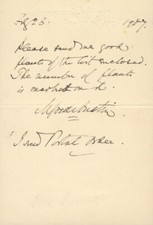 1907.
Please send me good
plants of the list enclosed.
The number of plants
is marked on it.
I send Postal Order.